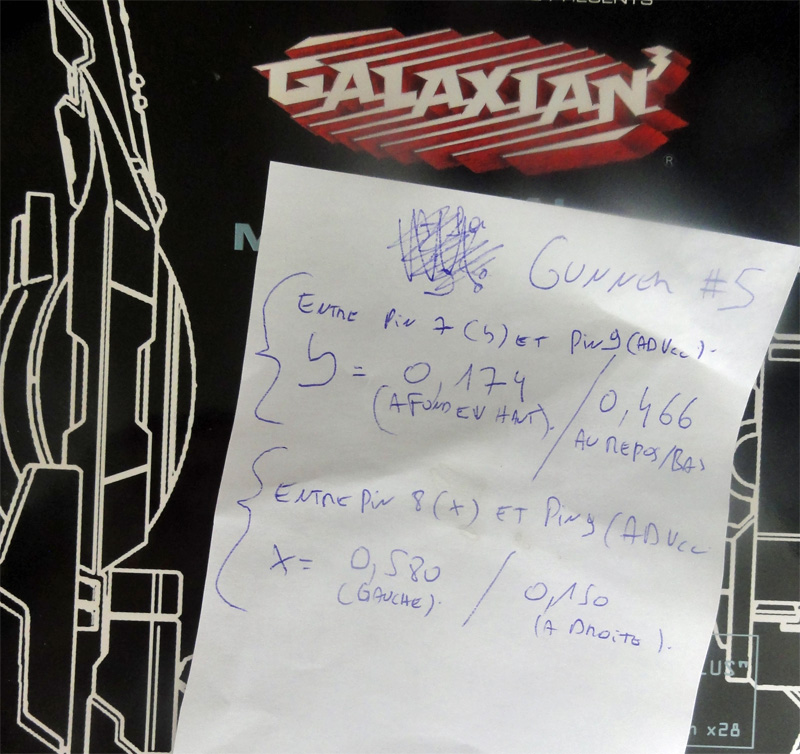 PRESENTS
GALAXIAN³
®
GUNNER #5
ENTRE PIN 7 (Y) ET PIN 9 (ADVcc).
Y = 0,174 / 0,466
(A FOND EN HAUT). AU REPOS/BAS
ENTRE PIN 8 (X) ET PIN 9 (ADVcc
X = 0,580 / 0,150
(GAUCHE). (A DROITE).
LUS"
x28